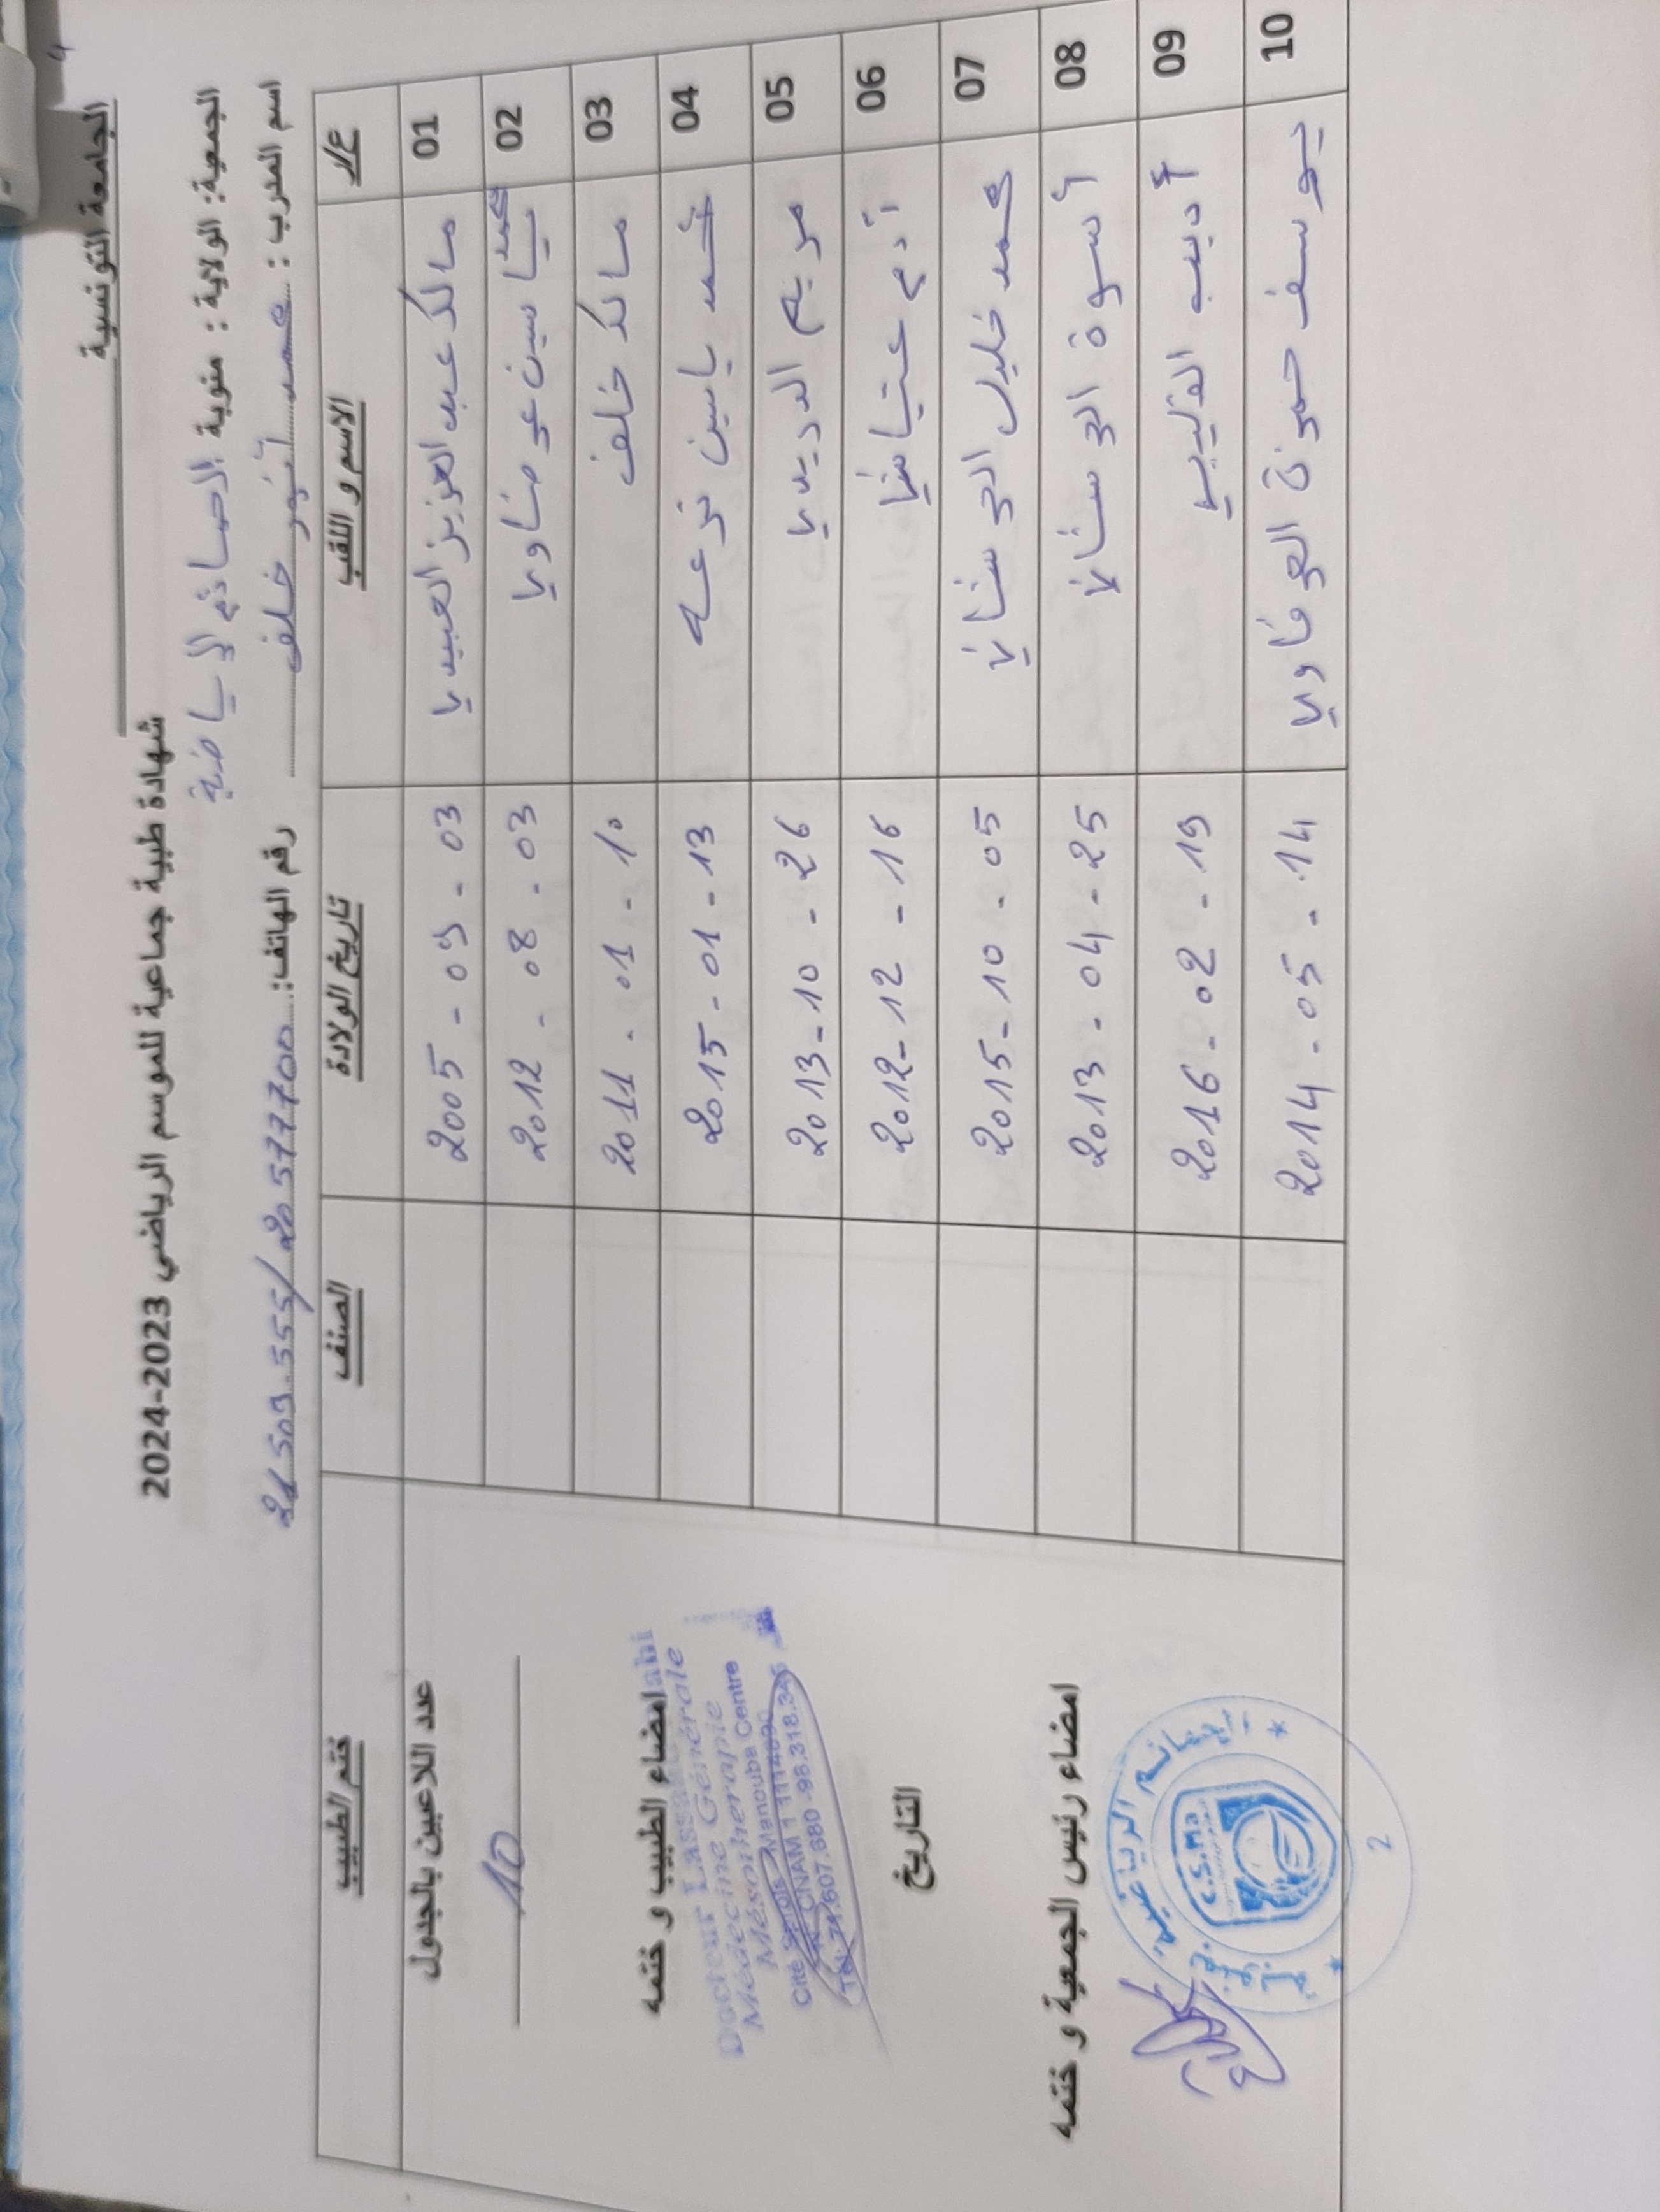 الجامعة التونسية
شهادة طبية جماعية للموسم الرياضي 2023-2024
الجمعية: الولاية : منوبة الصمائم الرياضية
اسم المدرب : محمد أنور خلف رقم الهاتف: 20 577700 / 21 509 555
ع/ر الاسم و اللقب تاريخ الولادة الصنف ختم الطبيب
01 مالك عبد العزيز العبيدي 2005 - 09 - 03
02 محمد ياسين عرضاوي 2012 - 08 - 03
03 مالك خلف 2011 - 01 - 10
04 محمد ياسين 2015 - 01 - 13
05 مريم الدريدي 2013 - 10 - 26
06 آدم 2012 - 12 - 16
07 محمد خليل 2015 - 10 - 05
08 أسوة 2013 - 04 - 25
09 أديب القليبي 2016 - 02 - 19
10 يوسف حمزة 2014 - 05 - 14
عدد اللاعبين بالجدول
10
امضاء الطبيب و ختمه
Docteur
Médecine Générale
Mésothérapie
Cité Manouba Centre
CNAM
Tél: 71.607.680 - 98.318.346
التاريخ
امضاء رئيس الجمعية و ختمه
الرياضية
C.S.Ma
2